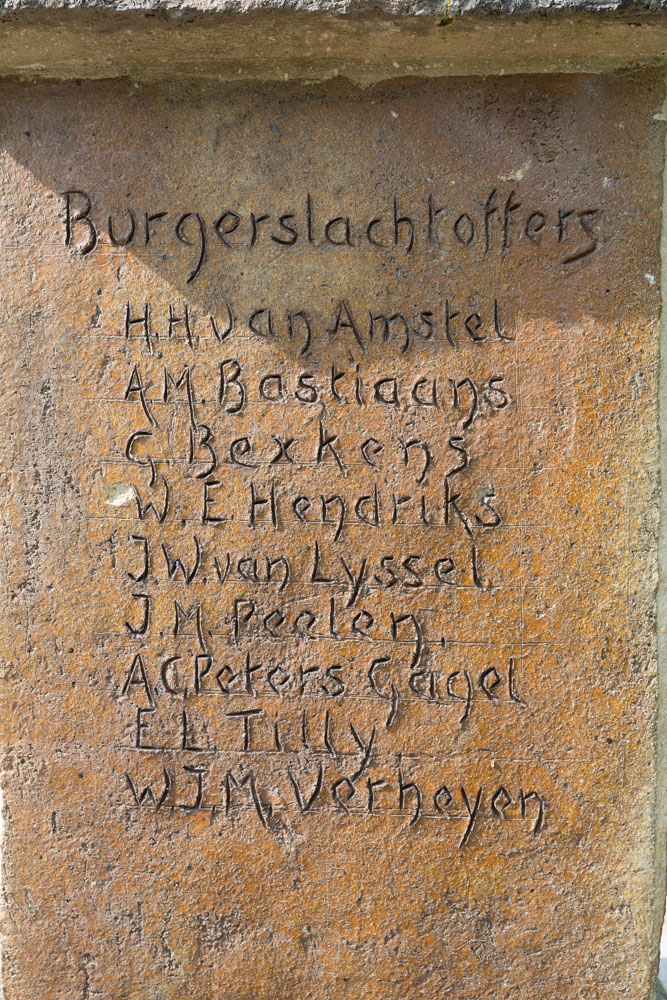 Burgerslachtoffers
H.H. van Amstel
A.M. Bastiaans
G. Bexkens
W.E. Hendriks
J.W. van Lyssel
J.M. Peelen
A.G. Peters Gagel
E.L. Tilly
W.J.M. Verheyen